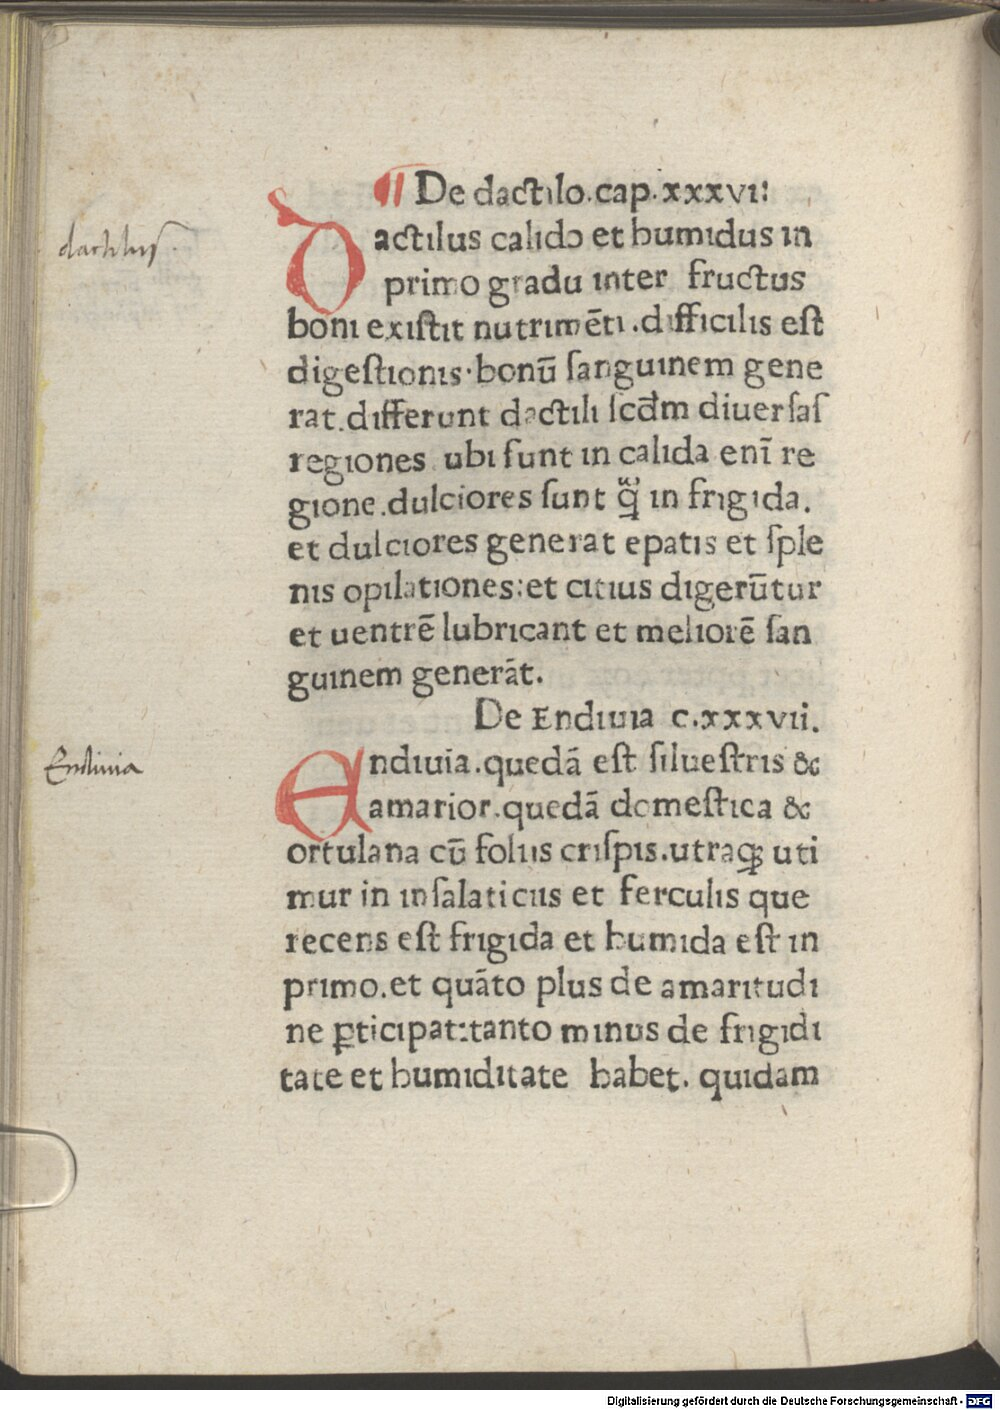 ¶ De dactilo.cap.xxxvi:
dactilus
Dactilus calido et humidus in
primo gradu inter fructus
boni exiſtit nutrimēti.difficilis eſt
digeſtionis·bonū ſanguinem gene
rat.differunt dactili ſcd̄m diuerſaſ
regiones ubi ſunt in calida enī re
gione.dulciores ſunt qᷓ in frigida.
et dulciores generat epatis et ſple
nis opilationes:et citius digerūtur
et uentrē lubricant et meliorē ſan
guinem generāt.
De Endiuia c.xxxvii.
Endivia
Endiuia.quedā eſt ſilueſtris &
amarior.quedā domeſtica &
ortulana cū foliis criſpis.utraqꝫ uti
mur in inſalaticiis et ferculis que
recens eſt frigida et humida eſt in
primo.et quāto plus de amaritudi
ne ꝑticipat:tanto minus de frigidi
tate et humiditate habet. quidam
Digitalisierung gefördert durch die Deutsche Forschungsgemeinschaft - DFG